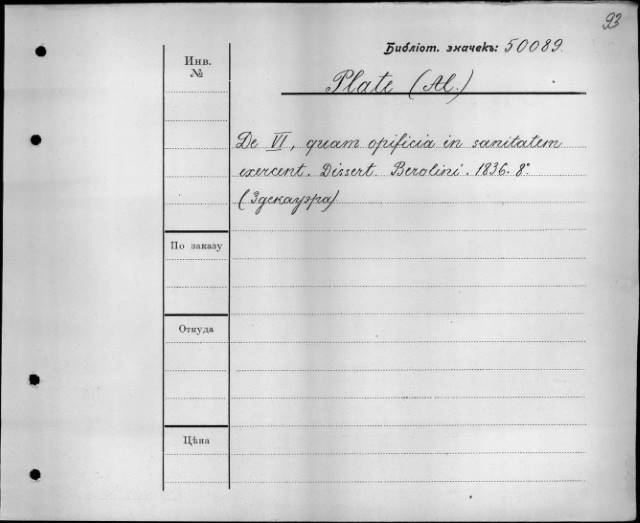 93
Библіот. значекъ: 50089.
Инв. №
Plate (Al.)
De VI, quam opificia in sanitatem
exercent. Dissert Berolini. 1836. 8°
(Здекауэра)
По заказу
Откуда
Цѣна